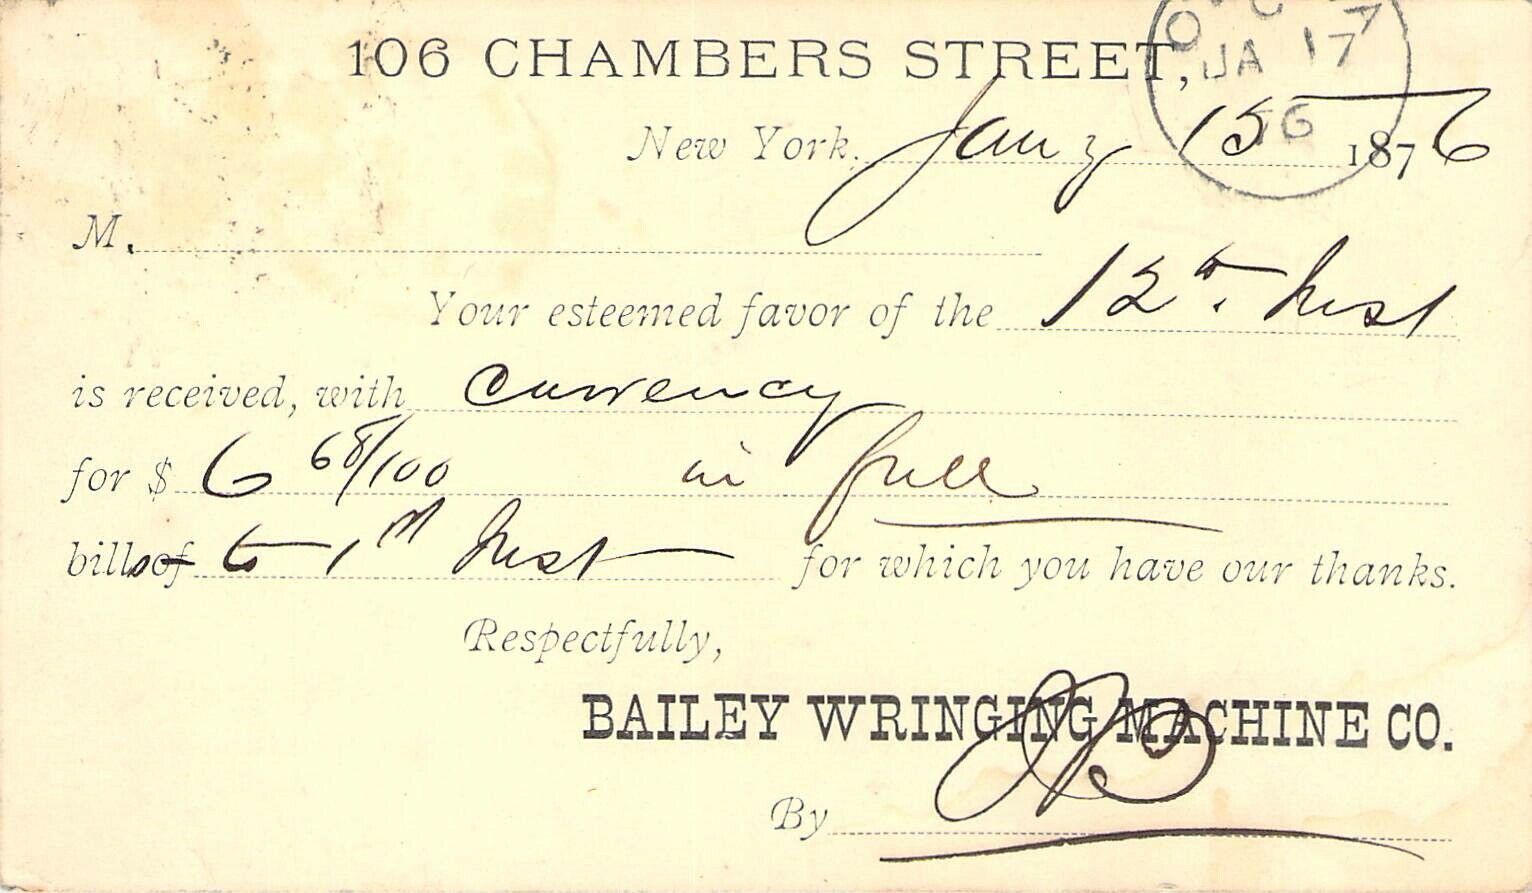 106 CHAMBERS STREET,
JA 17
76
New York. Jany 15 1876
M.
Your esteemed favor of the 12th. Inst
is received, with currency
for $ 6 68/100 in full
bills of to 1st Inst for which you have our thanks.
Respectfully,
BAILEY WRINGING MACHINE CO.
By